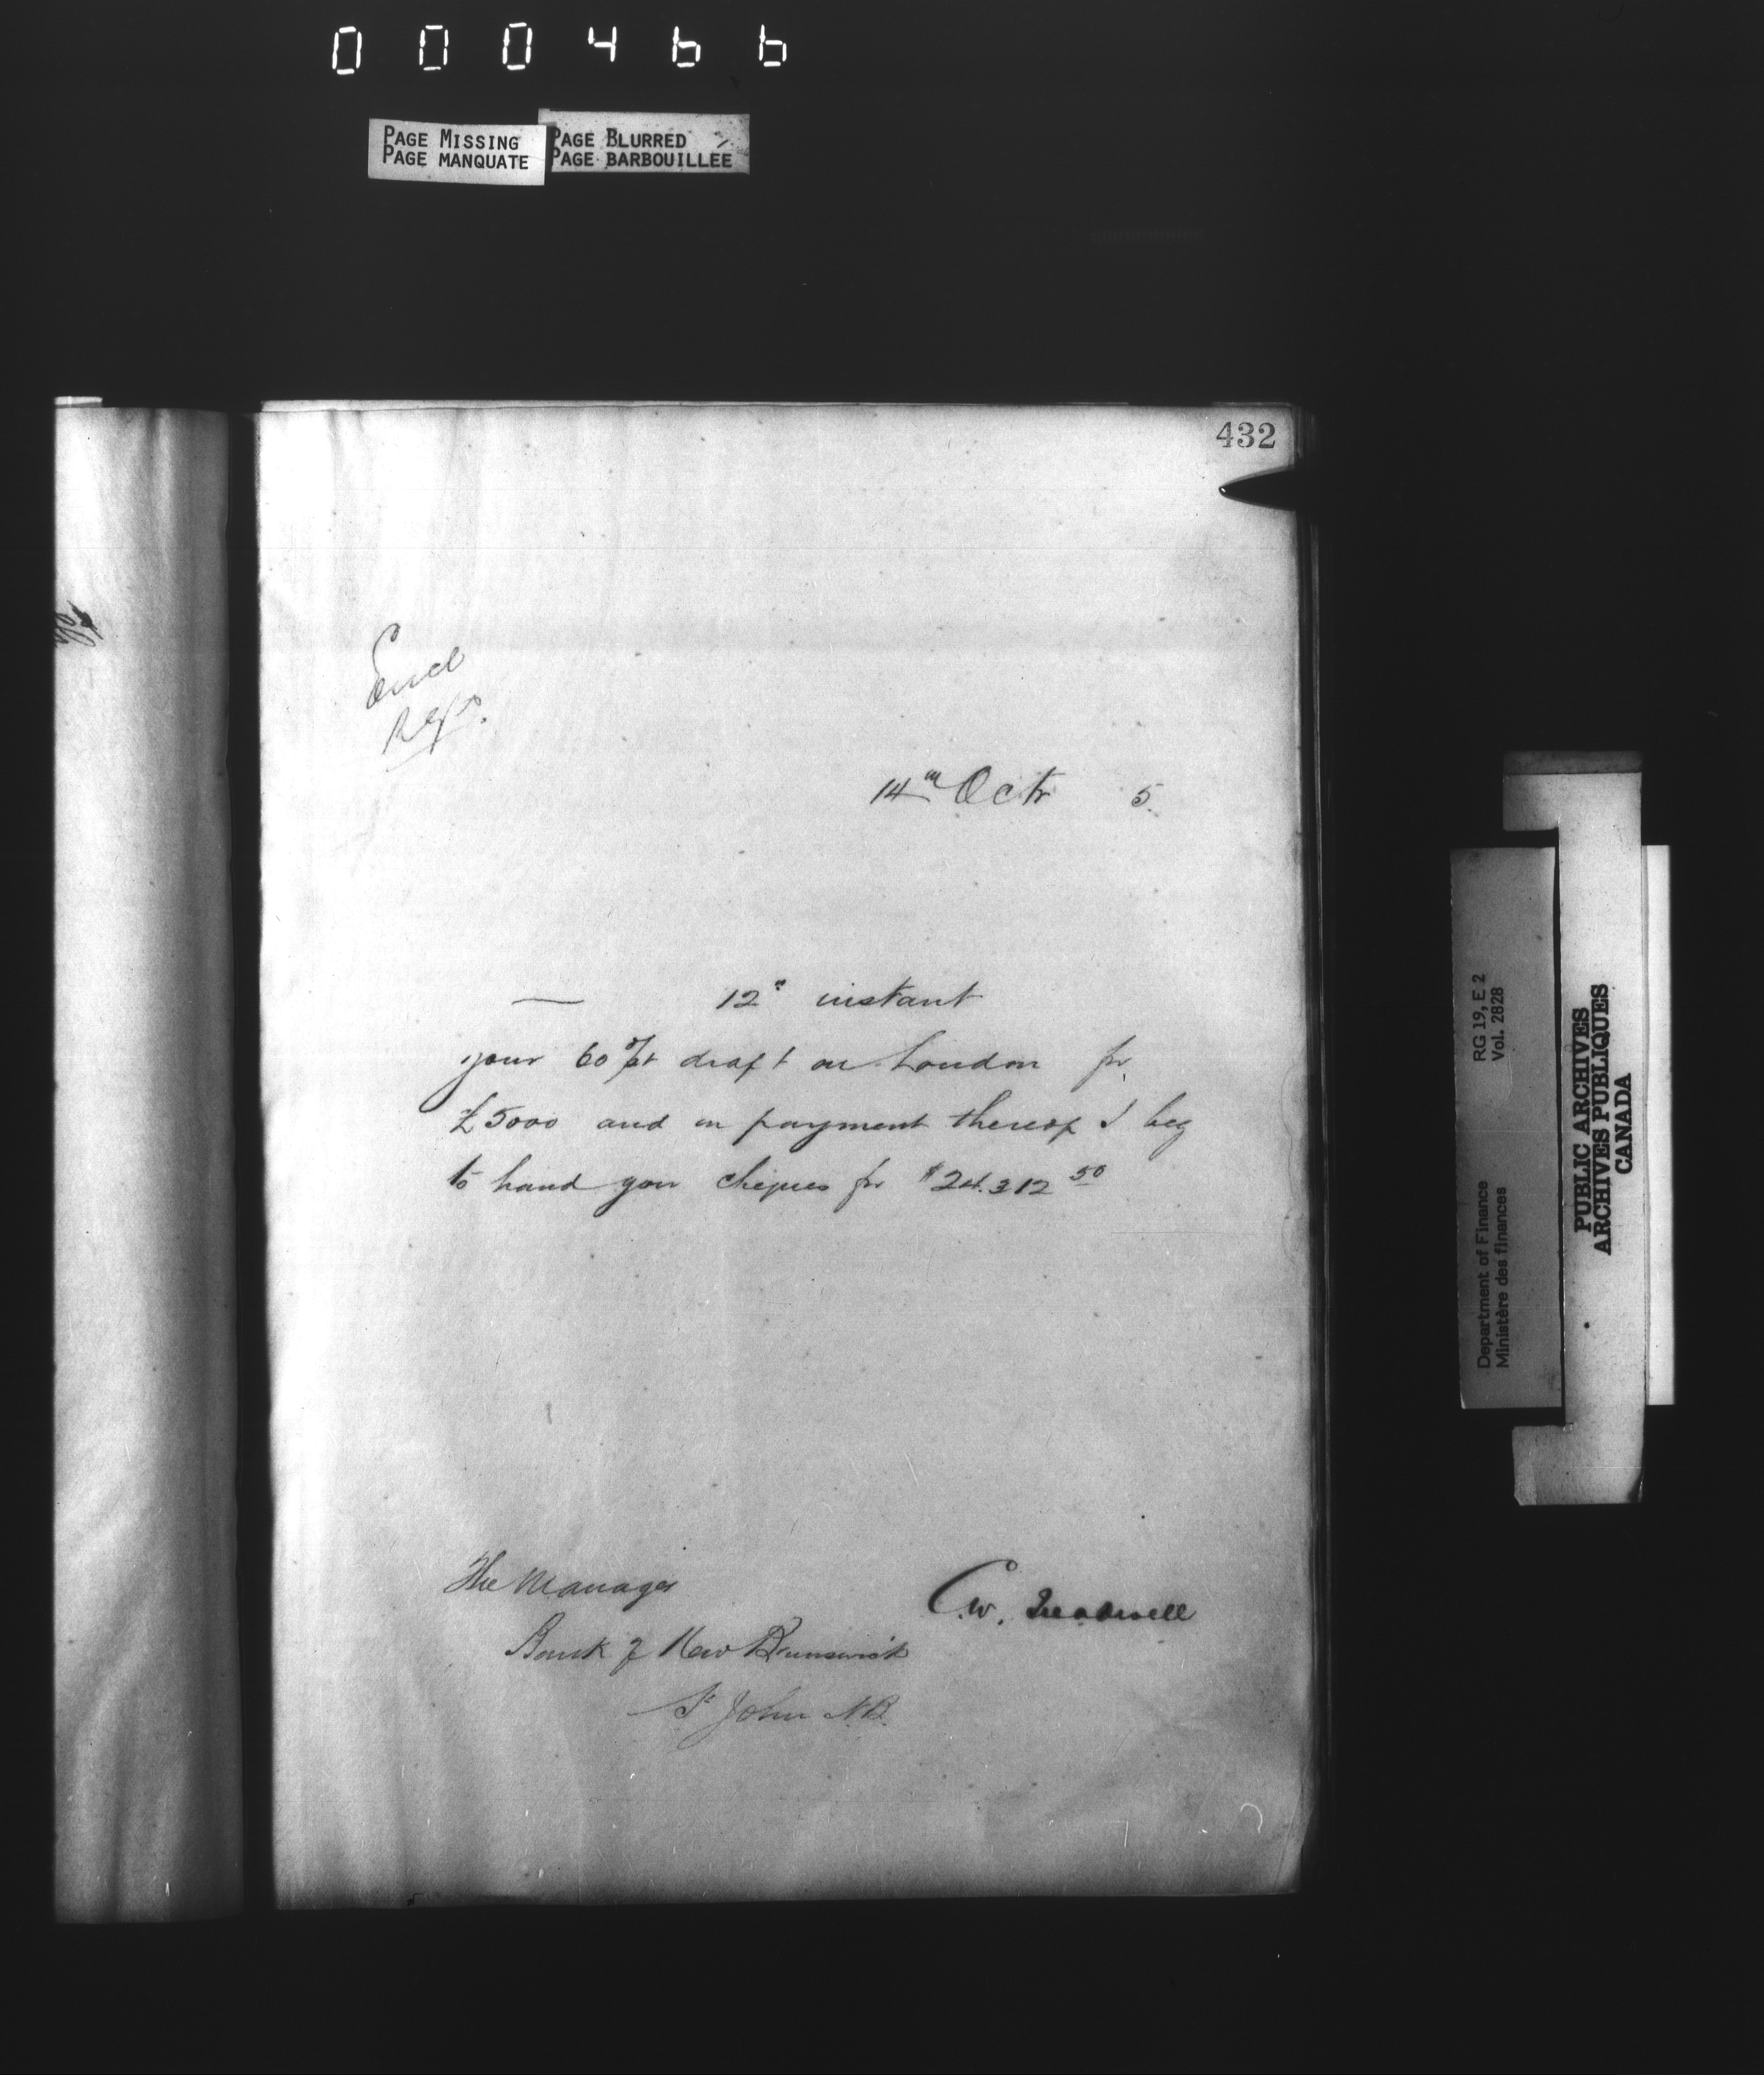 000466
PAGE MISSING
PAGE MANQUATE
PAGE BLURRED
PAGE BARBOUILLEE
432
Encl
14th Octr 5.
— 12th instant
your 60 d/st draft on London for
£5000 and in payment thereof I beg
to hand you cheques for $24.312 50
C.W. Treadwell
The Manager
Bank of New Brunswick
St John N.B.
RG 19, E 2
Vol. 2828
Department of Finance
Ministère des finances
PUBLIC ARCHIVES
ARCHIVES PUBLIQUES
CANADA